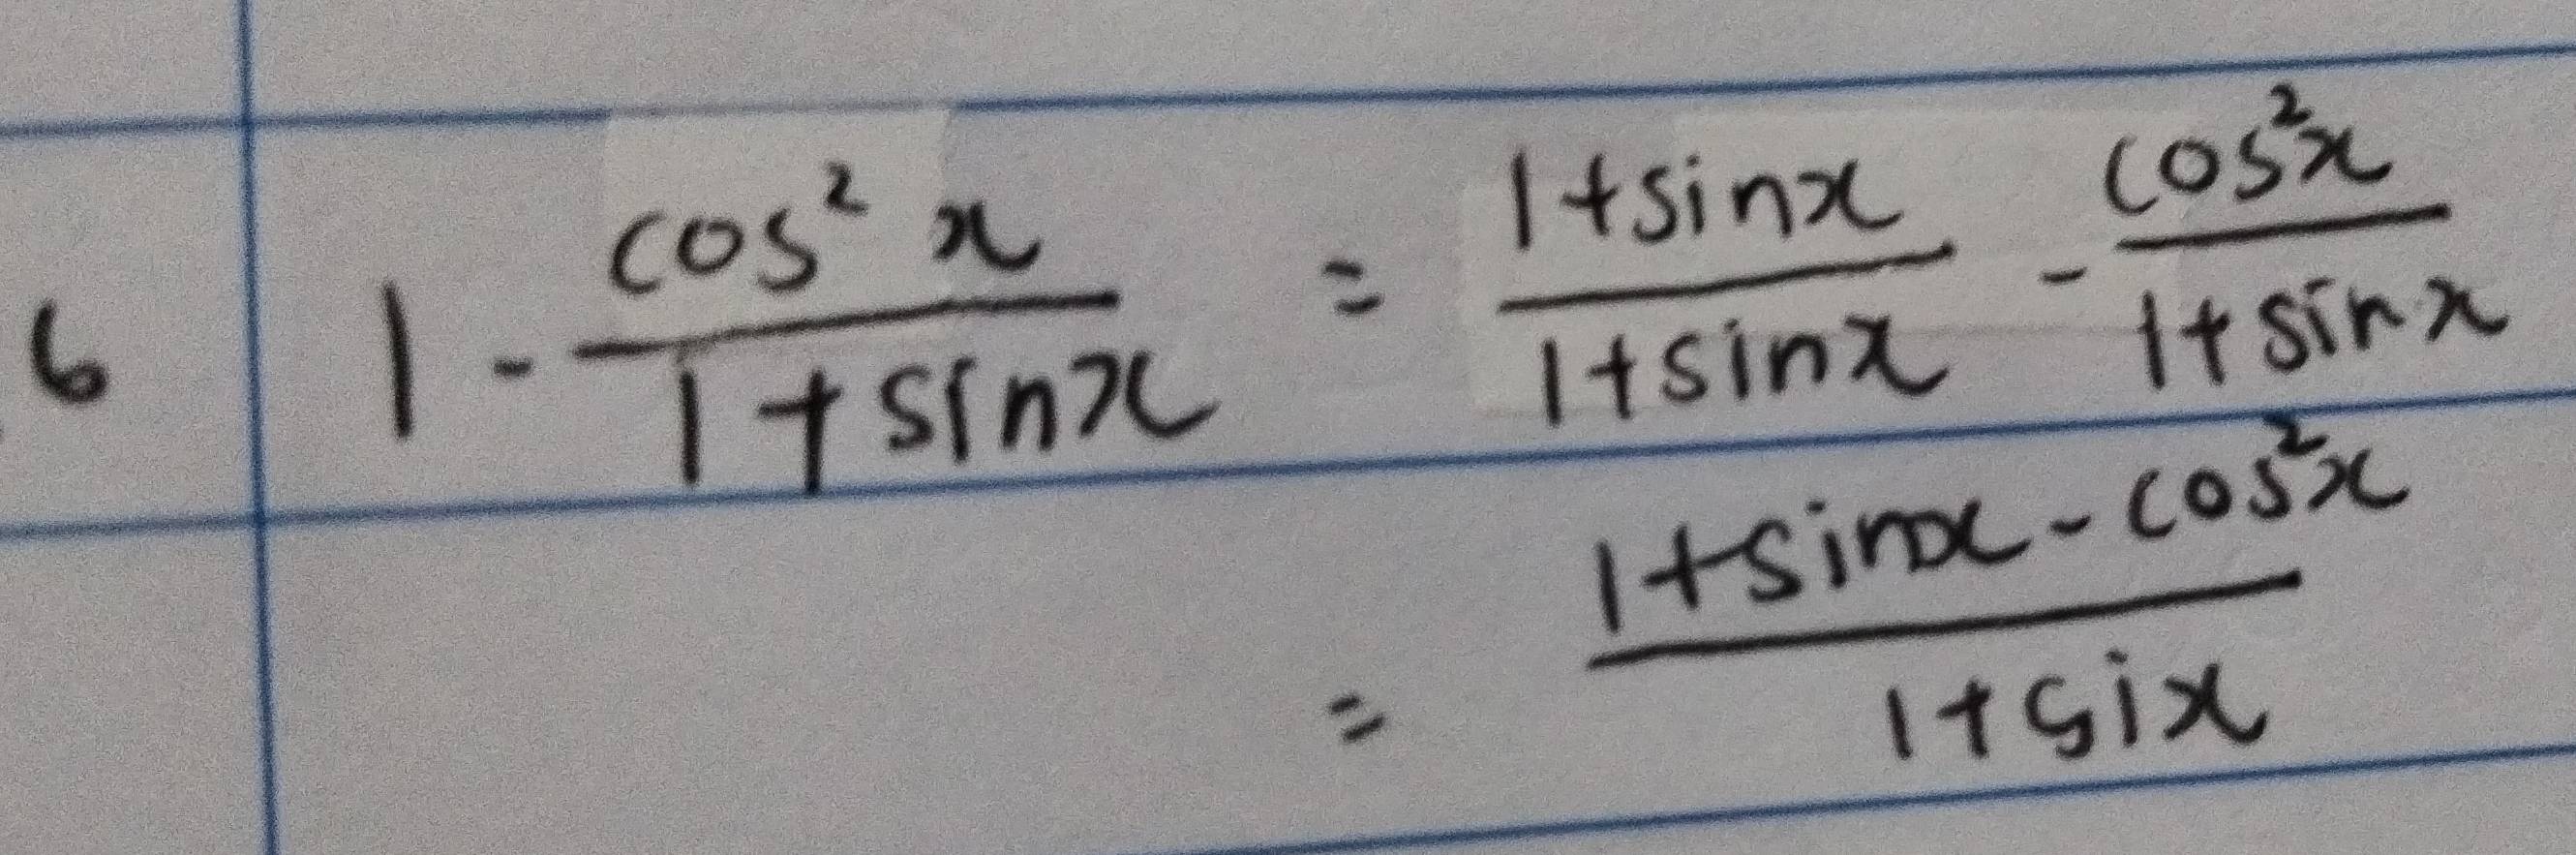 6 1 - cos² x / 1 + sinx = 1+sinx / 1+sinx - cos²x / 1+sinx
= 1+sinx - cos²x / 1+six